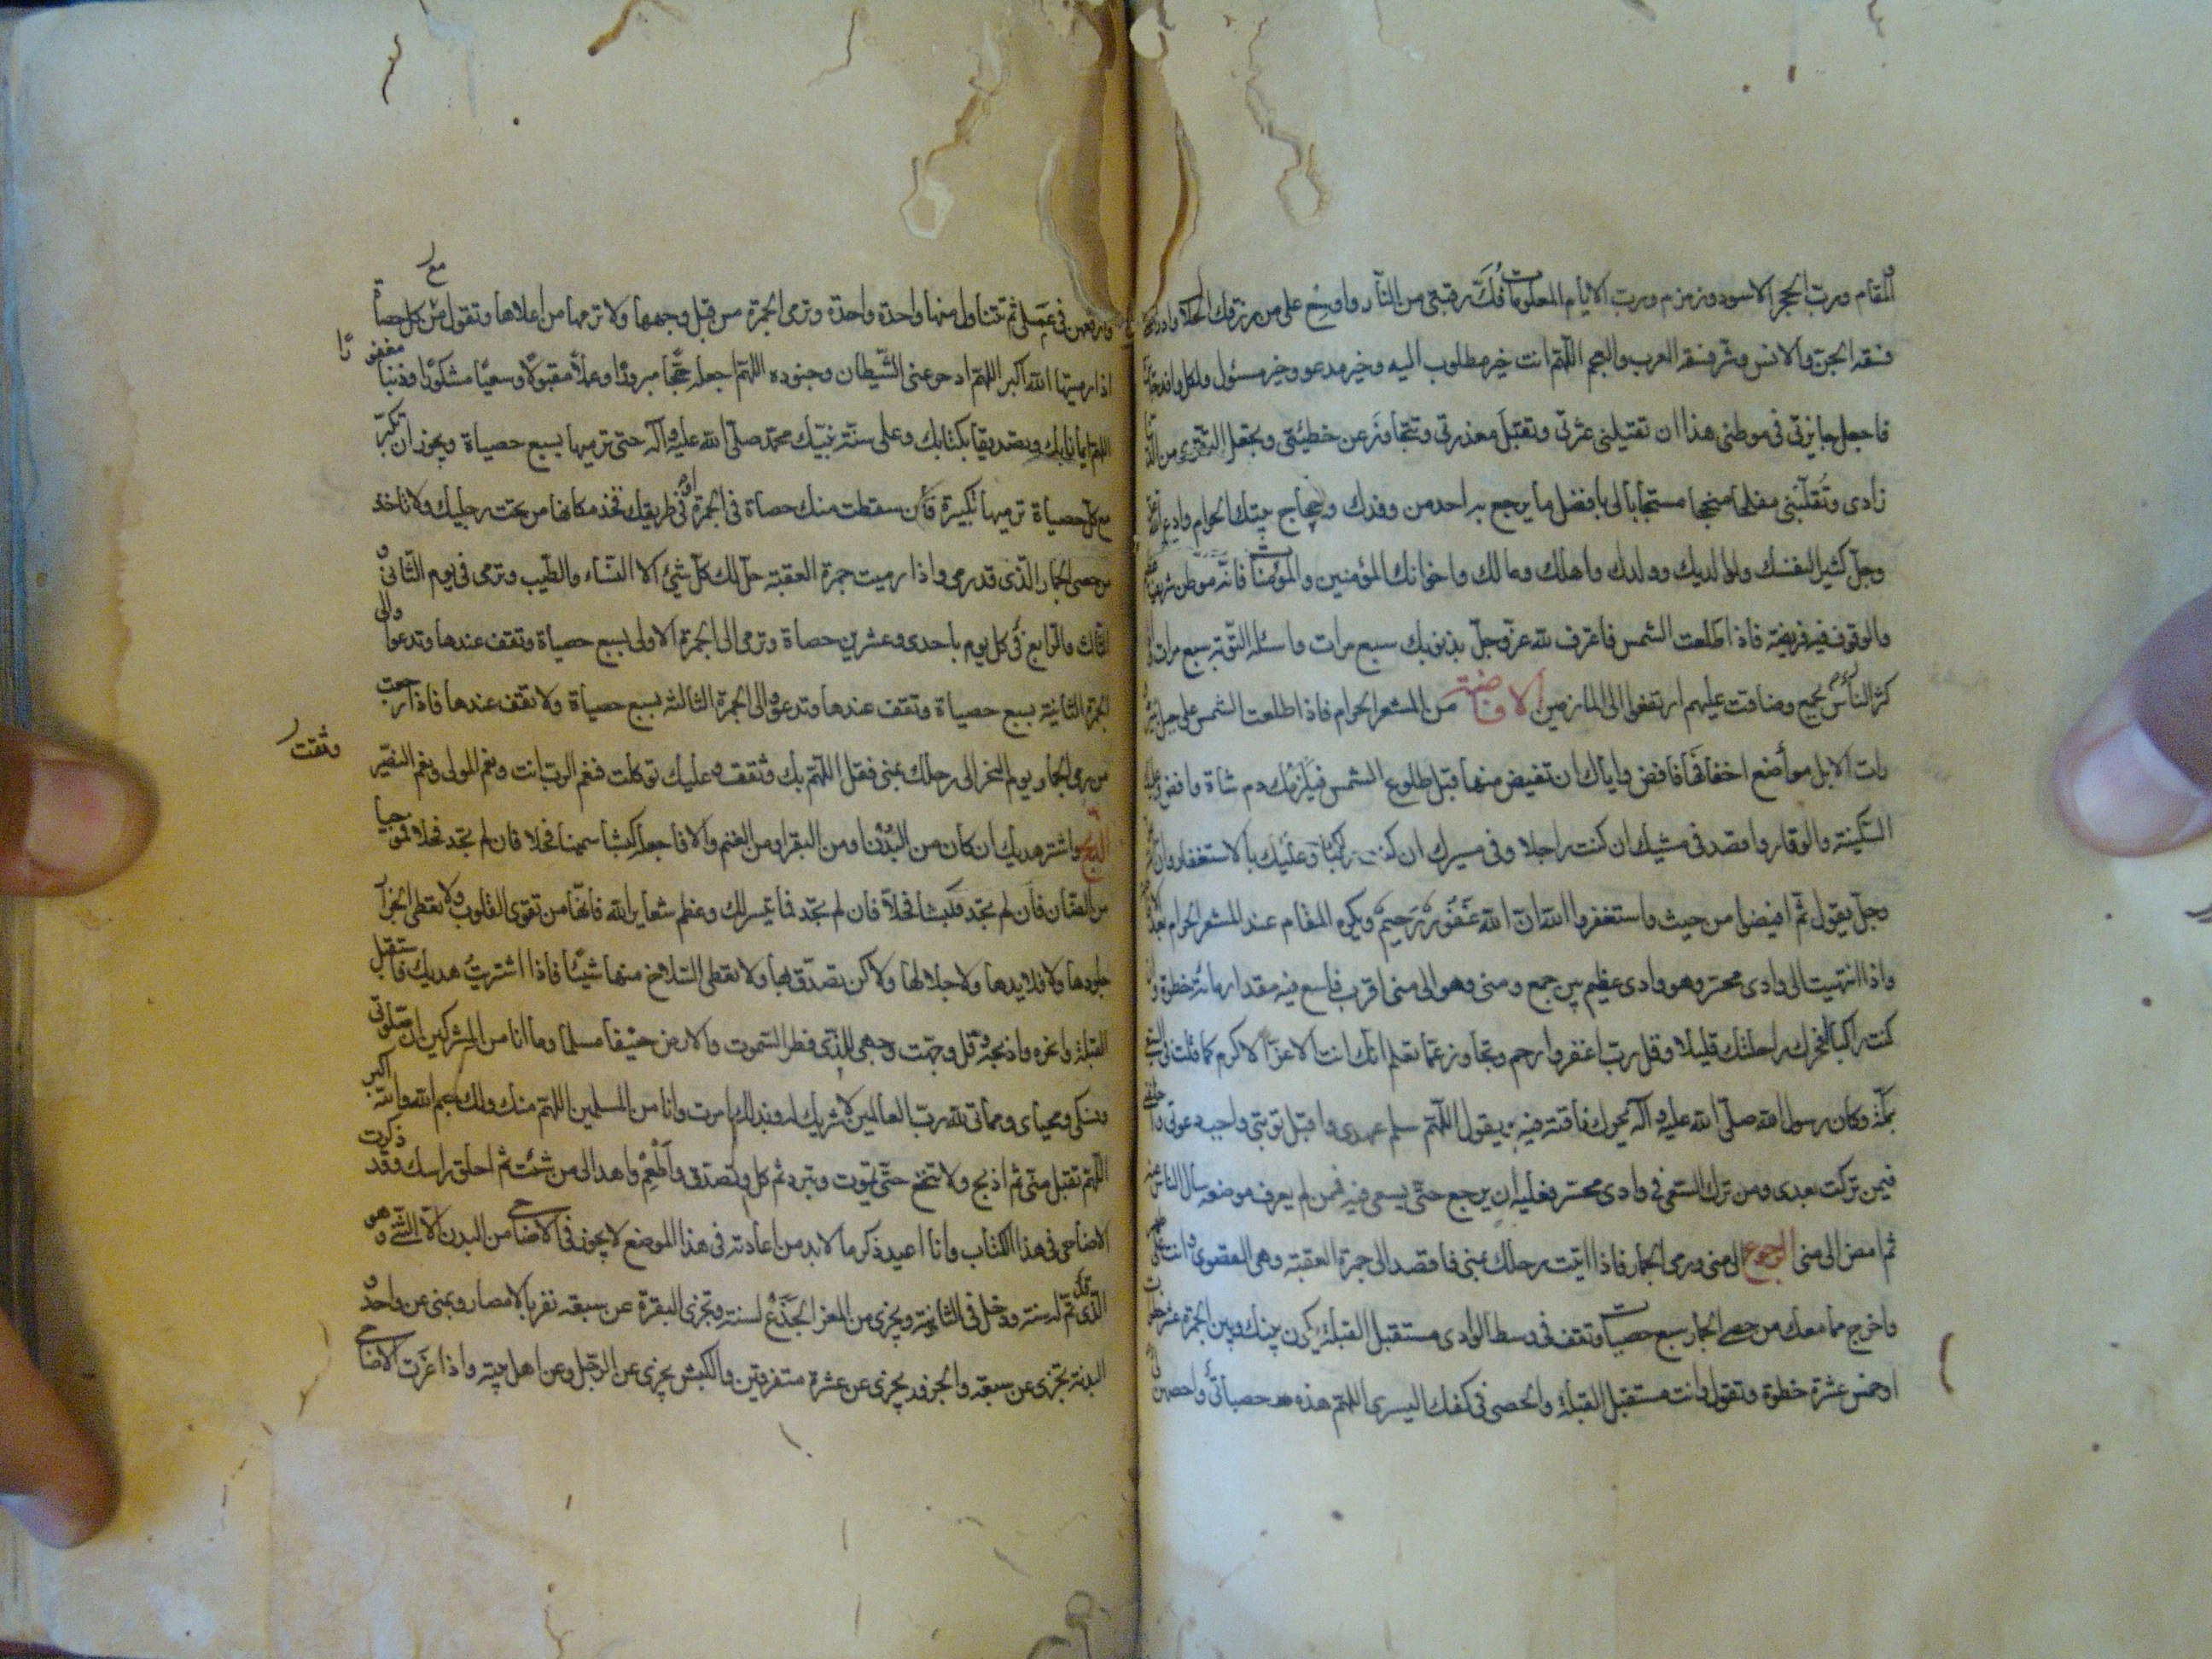 المقام ورب الحجر الاسود وزمزم ورب الايام المعلومات فك رقبتي من النار واوسع علي من رزقك الحلال وادرء عني
فسقه الجن والانس وشر فسقه العرب والعجم اللهم انت خير مطلوب اليه وخير مدعو وخير مسئول ولكل وافد جائزة
فاجعل جايزتي في موطني هذا ان تقيلني عثرتي وتقبل معذرتي وتتجاوز عن خطيئتي وتجعل التقوى من الدنيا
زادي وتقلبني مفلحا منجحا مستجابا لي بافضل ما يرجع به احد من وفدك وحجاج بيتك الحرام وادع الله عز
وجل كثيرا لنفسك ولوالديك وولدك واهلك ومالك واخوانك المؤمنين والمؤمنات فانه موطن شريف عظيم
والوقوف فيه فريضة فاذا طلعت الشمس فاعترف لله عز وجل بذنوبك سبع مرات واسئله التوبة سبع مرات
كثر الناس بجمع وضاقت عليهم ارتفعوا الى المازمين الافاضة من المشعر الحرام فاذا طلعت الشمس على جبل ثبير
رات الابل مواضع اخفافها فافض واياك ان تفيض منها قبل طلوع الشمس فيلزمك دم شاة وافض وعليك
السكينة والوقار واقصد في مشيك ان كنت راجلا وفي مسيرك ان كنت راكبا وعليك بالاستغفار فان
وجل يقول ثم افيضوا من حيث واستغفروا الله ان الله غفور رحيم ويكره المقام عند المشعر الحرام بعد
واذا انتهيت الى وادي محسر وهو وادي عظيم بين جمع ومنى وهو الى منى اقرب فاسع فيه مقدار مائة خطوة وان
كنت راكبا فحرك راحلتك قليلا وقل رب اغفر وارحم وتجاوز عما تعلم انك انت الاعز الاكرم كما قلت في السعي
بمكة وكان رسول الله صلى الله عليه وآله يحرك ناقته فيه ويقول اللهم سلم عهدي واقبل توبتي واجب دعوتي واخلفني
فيمن تركت بعدي ومن ترك السعي في وادي محسر فعليه ان يرجع حتى يسعى فيه فمن لم يعرف موضعه سال الناس عنه
ثم امض الى منى الرجوع الى منى ورمي الجمار فاذا اتيت رحلك بمنى فاقصد الى جمرة العقبة وهي القصوى وانت على طهر
واخرج مما معك من حصى الجمار سبع حصيات وتقف في وسط الوادي مستقبل القبلة يكون بينك وبين الجمرة عشر خطوات
او خمس عشرة خطوة وتقول وانت مستقبل القبلة والحصى في كفك اليسرى اللهم هذه حصياتي فاحصهن لي
وارفعهن في عملي ثم تتناول منها واحدة واحدة وترمي الجمرة من قبل وجهها ولا ترمها من اعلاها وتقول مع كل حصاة
اذا رميتها الله اكبر اللهم ادحر عني الشيطان وجنوده اللهم اجعله حجا مبرورا وعملا مقبولا وسعيا مشكورا وذنبا مغفورا
اللهم ايمانا بك وتصديقا بكتابك وعلى سنة نبيك محمد صلى الله عليه وآله حتى ترميها بسبع حصياة ويجوز ان تكبر
مع كل حصياة ترميها تكبيرة فان سقطت منك حصاة في الجمرة او في طريقك فخذ مكانها من تحت رجليك ولا تاخذ
من حصى الجمار الذي قد رمي واذا رميت جمرة العقبة حل لك كل شيئ الا النساء والطيب وترمي في يوم الثاني و
الثالث والرابع في كل يوم باحدى وعشرين حصاة وترمي الى الجمرة الاولى بسبع حصياة وتقف عندها وتدعوا والى
الجمرة الثانية بسبع حصياة وتقف عندها وتدعو والى الجمرة الثالثة بسبع حصياة ولا تقف عندها فاذا رجعت
من رمي الجمار يوم النحر الى رحلك بمنى فقل اللهم بك وثقت وعليك توكلت فنعم الرب انت ونعم المولى ونعم النصير
وثقت
الذبح واشتر هديك ان كان من البدن او من البقر او من الغنم والا فاجعله كبشا سمينا فحلا فان لم تجد فحلا فموجيا
من الضان فان لم تجد فكبشا فحلا فان لم تجد فما تيسر لك وعظم شعاير الله فانها من تقوى القلوب ولا تعطى الجزار
جلودها ولا قلايدها ولا جلالها ولاكن تصدق بها ولا تعطى السلاخ منها شيئا فاذا اشتريت هديك فاستقبل
القبلة وانحره واذبحه وقل وجهت وجهي للذي فطر السموت والارض حنيفا مسلما وما انا من المشركين ان صلوتي
ونسكي ومحياي ومماتي لله رب العالمين لا شريك له وبذلك امرت وانا من المسلمين اللهم منك ولك بسم الله والله اكبر
اللهم تقبل مني ثم اذبح ولا تنخع حتى تموت وتبرد ثم كل وتصدق واطعم واهد الى من شئت ثم احلق راسك وقد ذكرت
الاضاحي في هذا الكتاب وانا اعيد ذكر ما لابد من اعادته في هذا الموضع لا يجوز في الاضاحي من البدن الا الثني وهو
الذي تم له سنة ودخل في الثانية ويجزي من المعز الجذع لسنة وتجزي البقرة عن سبعة نفر بالامصار وبمنى عن واحد و
البدنة تجزي عن سبعة والجزور يجزي عن عشرة متفرقين والكبش يجزي عن الرجل وعن اهل بيته واذا عزت الاضاحي